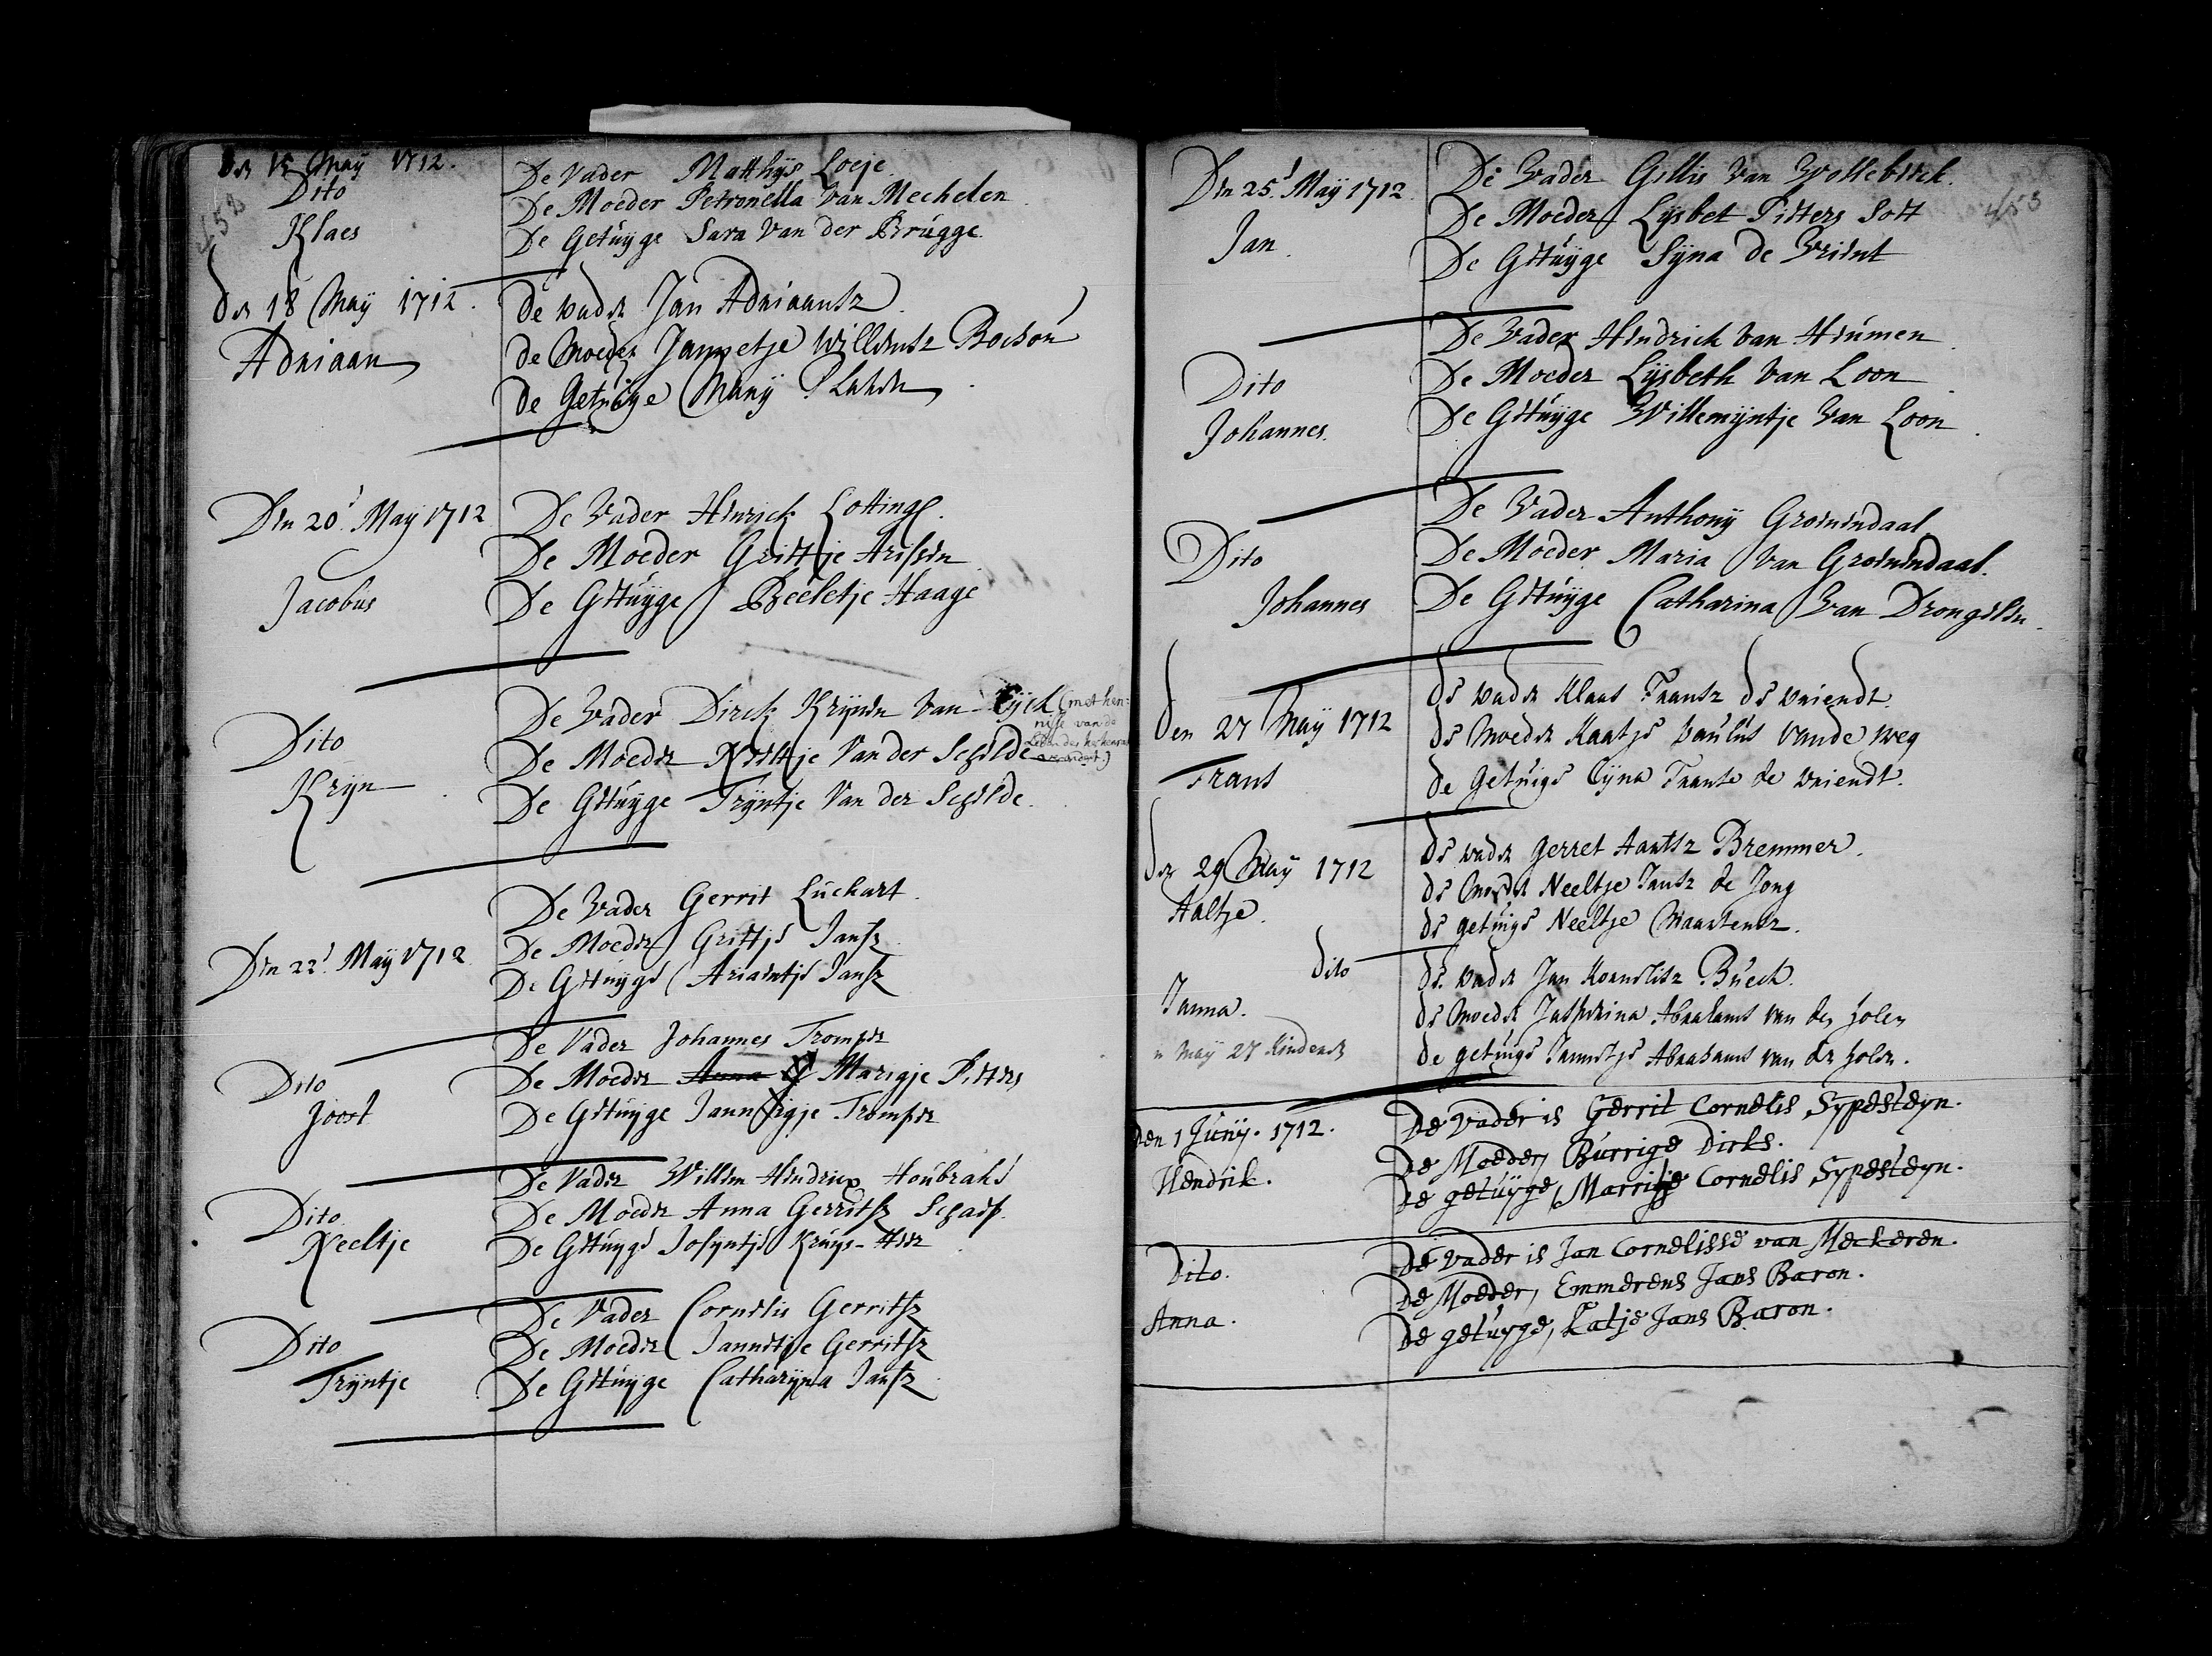 den 15 Maÿ 1712.
Dito
Klaes
De Vader Matthÿs Loeje
De Moeder Petronella Van Mechelen
De Getuÿge Sara Van der Brugge
den 18 Maÿ 1712.
Adriaan
de vader Jan Adriaansz
de Moeder Jannetje Willemsz
de Getuÿge Marÿ
Den 20e. Maÿ 1712
Jacobus
De Vader Hinrick
De Moeder Grietje Arissen
De Getuÿge Beeletje Haage
Dito
Krijn
De Vader Dirck Krijnen Van Eÿck (met ken-
nisse van de
De Moeder Neeltje Van der Schilde
De Getuÿge Trÿntje Van der Schilde
Den 22e. Maÿ 1712
De Vader Gerrit Luckart
De Moeder Grietje Jansz
De Getuÿge Ariaentje Jansz
Dito
Joost
De Vader Johannes Tromper
De Moeder Marigje Pieters
De Getuÿge Jannigje Tromper
Dito
Neeltje
De Vader Willem Hendricx Houbrake
De Moeder Anna Gerritsz Schaep
De Getuÿge Josÿntje Kruÿs-Heer
Dito
Trÿntje
De Vader Cornelis Gerritsz
De Moeder Jannetje Gerritsz
De Getuÿge Catharÿna Jansz
453
Den 25e. Maÿ 1712
Jan
De Vader Gillis Van Wollebreck
De Moeder Lÿsbet Pieters Sott
De Getuÿge Sÿna de Vrient
Dito
Johannes
De Vader Hendrick Van Heumen
De Moeder Lÿsbeth Van Loon
De Getuÿge Willemÿntje Van Loon
Dito
Johannes
De Vader Anthonÿ Groenendaal
De Moeder Maria Van Groenendaal
De Getuÿge Catharina Van Drongelen
den 27 Maÿ 1712
Frans
de vader Klaas Fransz de vriendt
de Moeder Kaatje Paulus vande weg
de getuige Cÿna Franse de vriendt
den 29 Maÿ 1712
Aaltje
de vader Gerret Aartsz Bremmer
de Moeder Neeltje Jansz de Jong
de getuige Neeltje Maartensz
dito
Janna.
de vader Jan Kornelisz Bueck
de Moeder Catherina Abrahams van der holen
de getuige Jannetje Abrahams van der holen
in Maÿ 27 kinderen
den 1 Junÿ. 1712.
Hendrik.
De Vader is Gerrit Cornelis Sypesteyn.
De Moeder, Burrige Dirks.
De getuyge, Marritje Cornelis Sypesteyn.
Dito.
Anna.
De Vader is Jan Cornelisse van Meckeren.
De Moeder, Emmerens Jans Baron.
De getuyge, Katje Jans Baron.